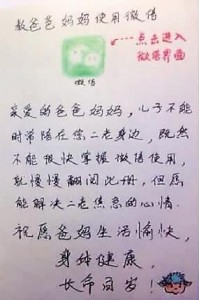 教爸爸妈妈使用微信
点击进入
微信界面
微信
亲爱的爸爸妈妈，儿子不能
时常陪在您二老身边，既然
不能很快掌握微信使用，
就慢慢翻阅此册，但愿
能解决二老焦急的心情.
祝愿爸妈生活愉快，
身体健康，
长命百岁！